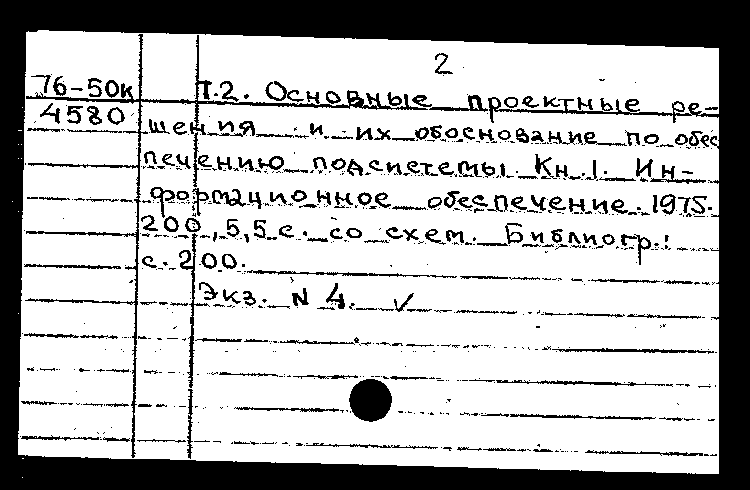 2
76-50к Т.2. Основные проектные ре-
4580 шения и их обоснование по обес
печению подсистемы. Кн.1. Ин-
формационное обеспечение. 1975.
200, 5,5 с. со схем. Библиогр.:
с. 200.
Экз. N 4. ✓